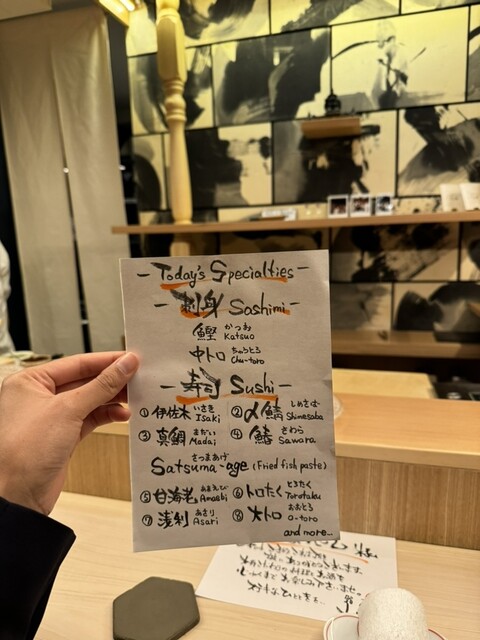 - Today's Specialties -
- 刺身 Sashimi -
鰹 かつお Katsuo
中トロ ちゅうとろ Chu-toro
- 寿司 Sushi -
① 伊佐木 いさき Isaki ② 〆鯖 しめさば Shimesaba
③ 真鯛 まだい Madai ④ 鰆 さわら Sawara
さつまあげ
Satsuma-age (Fried fish paste)
⑤ 甘海老 あまえび Amaebi ⑥ トロたく とろたく Torotaku
⑦ 浅利 あさり Asari ⑧ 大トロ おおとろ O-toro
and more...